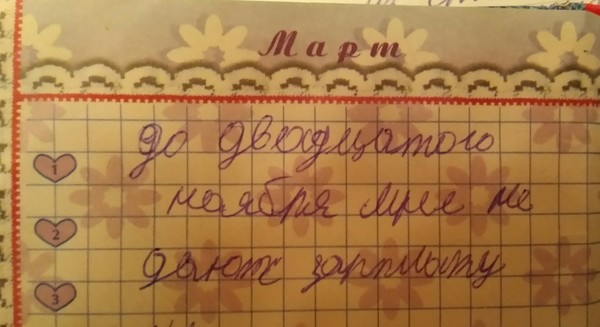 Март
до двадцатого
1
ноября мне не
2
дают зарплату
3